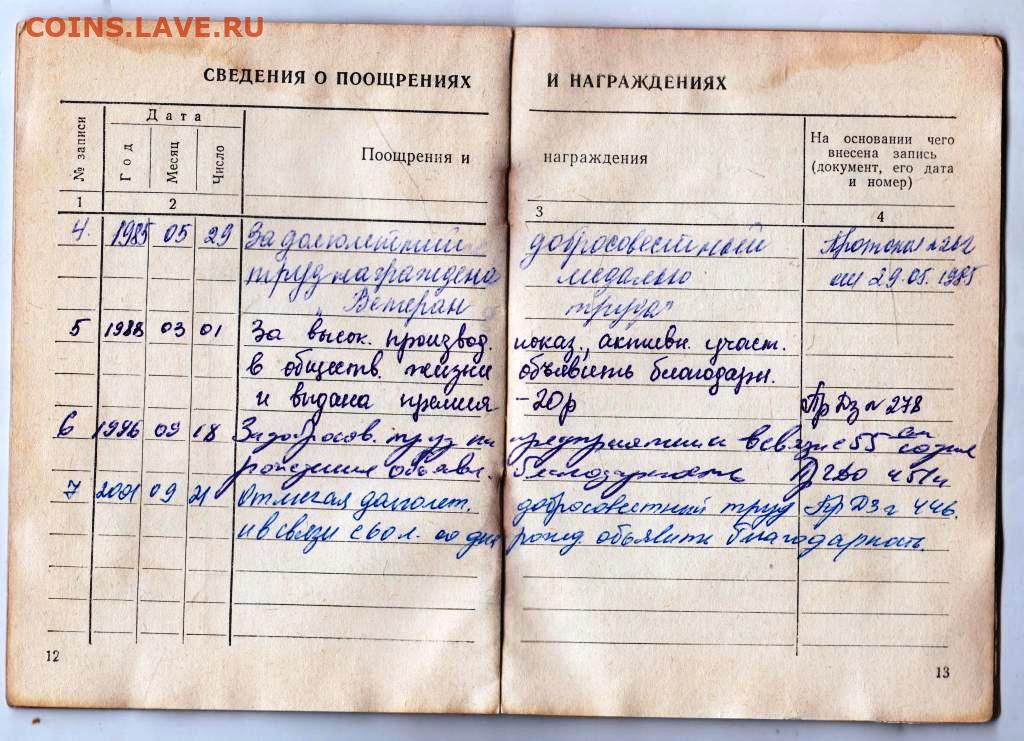 COINS.LAVE.RU
СВЕДЕНИЯ О ПООЩРЕНИЯХ И НАГРАЖДЕНИЯХ
№ записи
Дата
Год
Месяц
Число
Поощрения и награждения
На основании чего
внесена запись
(документ, его дата
и номер)
1 2 3 4
4. 1985 05 29 За долголетний добросовестный Протокол
труд награждена медалью от 29.05.1985
"Ветеран труда"
5 1988 03 01 За высок. производ. показ., активн. участ.
в обществ. жизни объявить благодарн.
и выдана премия -20р Пр ДЗ № 278
6 1996 09 18 За добросов. труд на предприятии и в связи с 55 ем со дня
рождения объявл. благодарность
7 2001 09 21 Отмечая долголет. добросовестный труд Пр ДЗ 446.
и в связи с 60 л. со дня рожд. объявить благодарность.
12
13